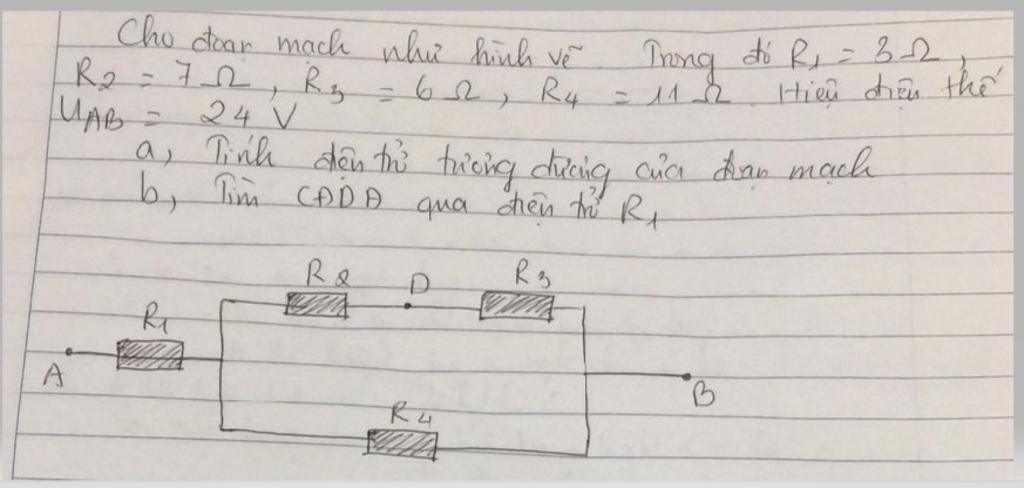 Cho đoạn mạch như hình vẽ. Trong đó R1 = 3Ω,
R2 = 7Ω, R3 = 6Ω, R4 = 11Ω. Hiệu điện thế
UAB = 24 V
a, Tính điện trở tương đương của đoạn mạch
b, Tìm CĐDĐ qua điện trở R1
R2 D R3
R1
A
B
R4